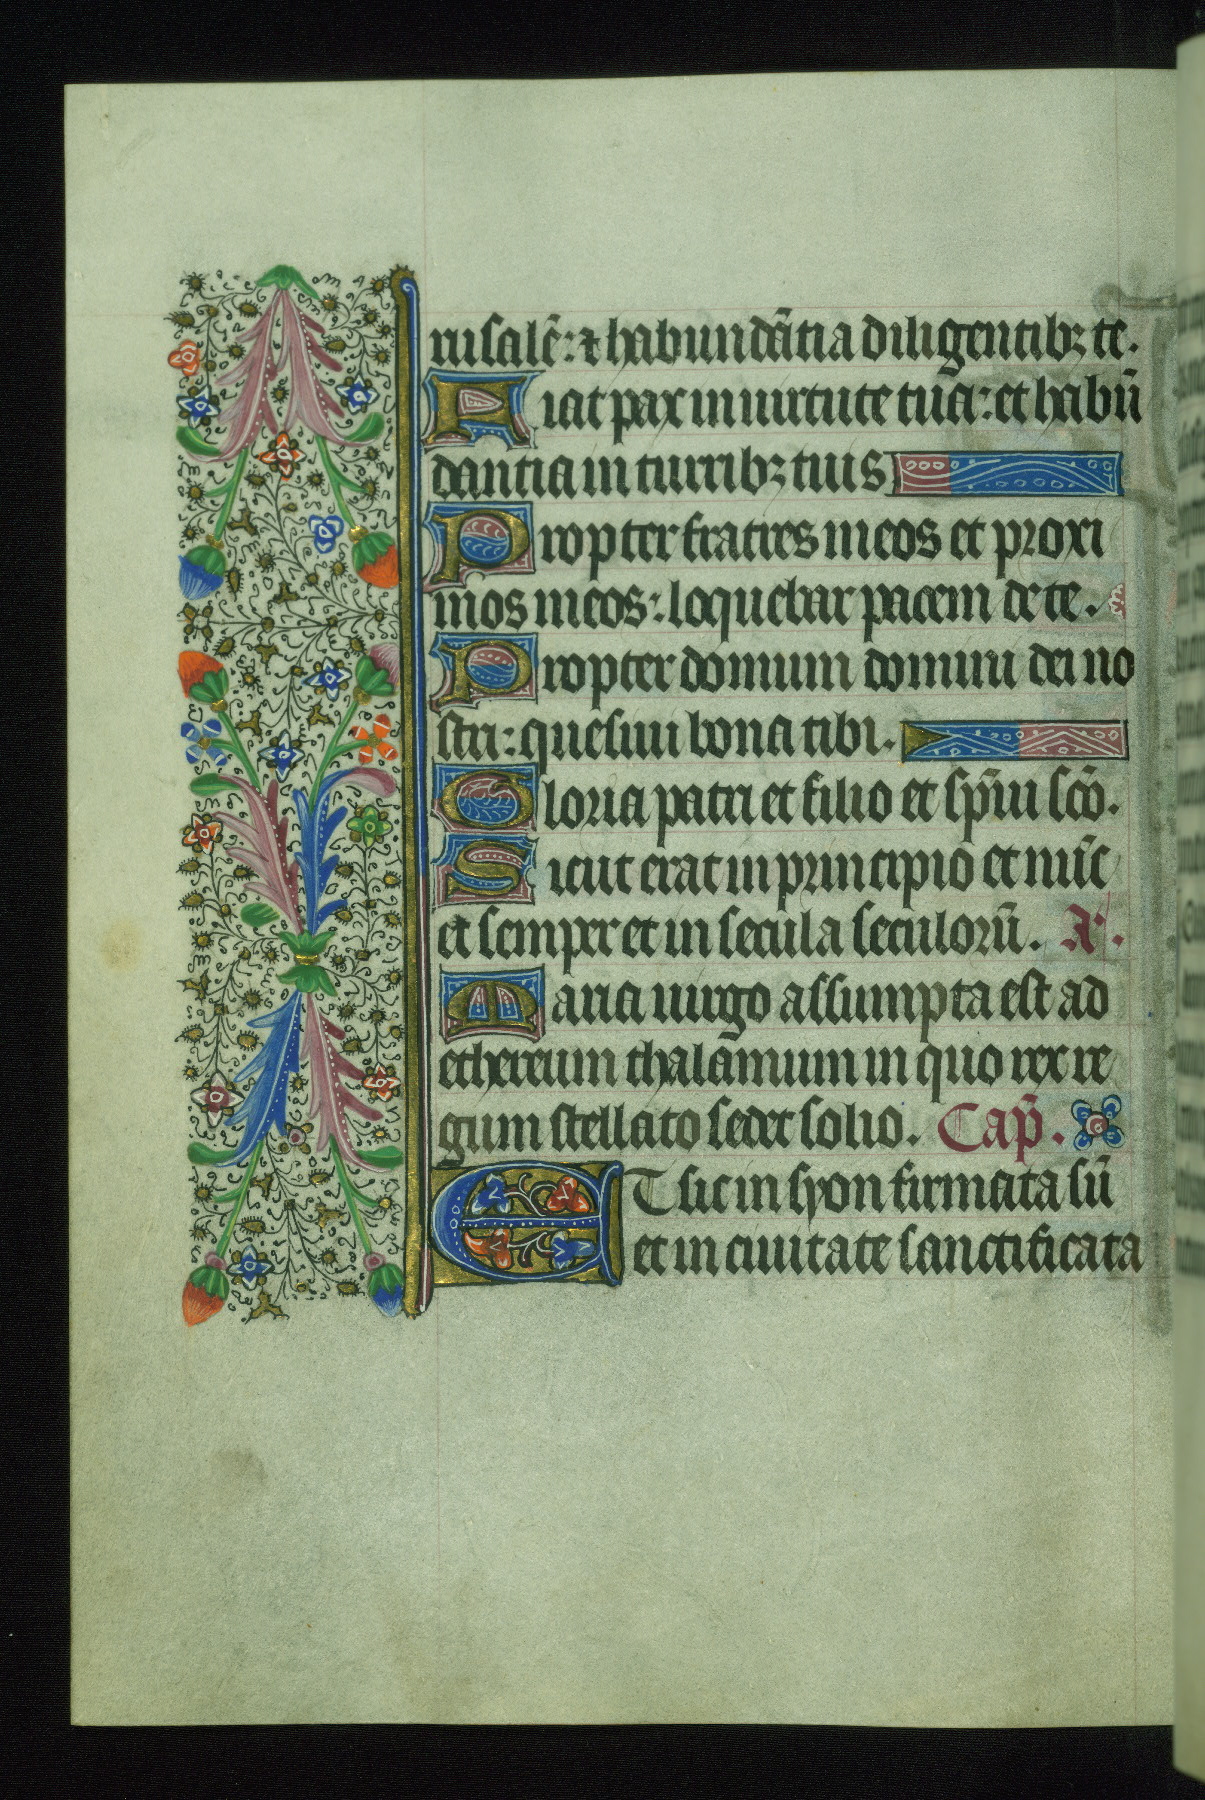 rusalē: ⁊ habundātia diligentibꝫ te.
Fiat pax in uirtute tua: et habū
dantia in turribꝫ tuis
Propter fratres meos et proxi
mos meos: loquebar pacem de te.
Propter domum domini dei no
stri: quesiui bona tibi.
Gloria patri et filio et sp̄ui sc̄o.
Sicut erat in principio et nūc
et semper et in secula seculorū. Añ.
Maria uirgo assumpta est ad
ethereum thalamum in quo rex re
gum stellato sedet solio. Cap̄.
ET sic in syon firmata sū
et in ciuitate sanctificata